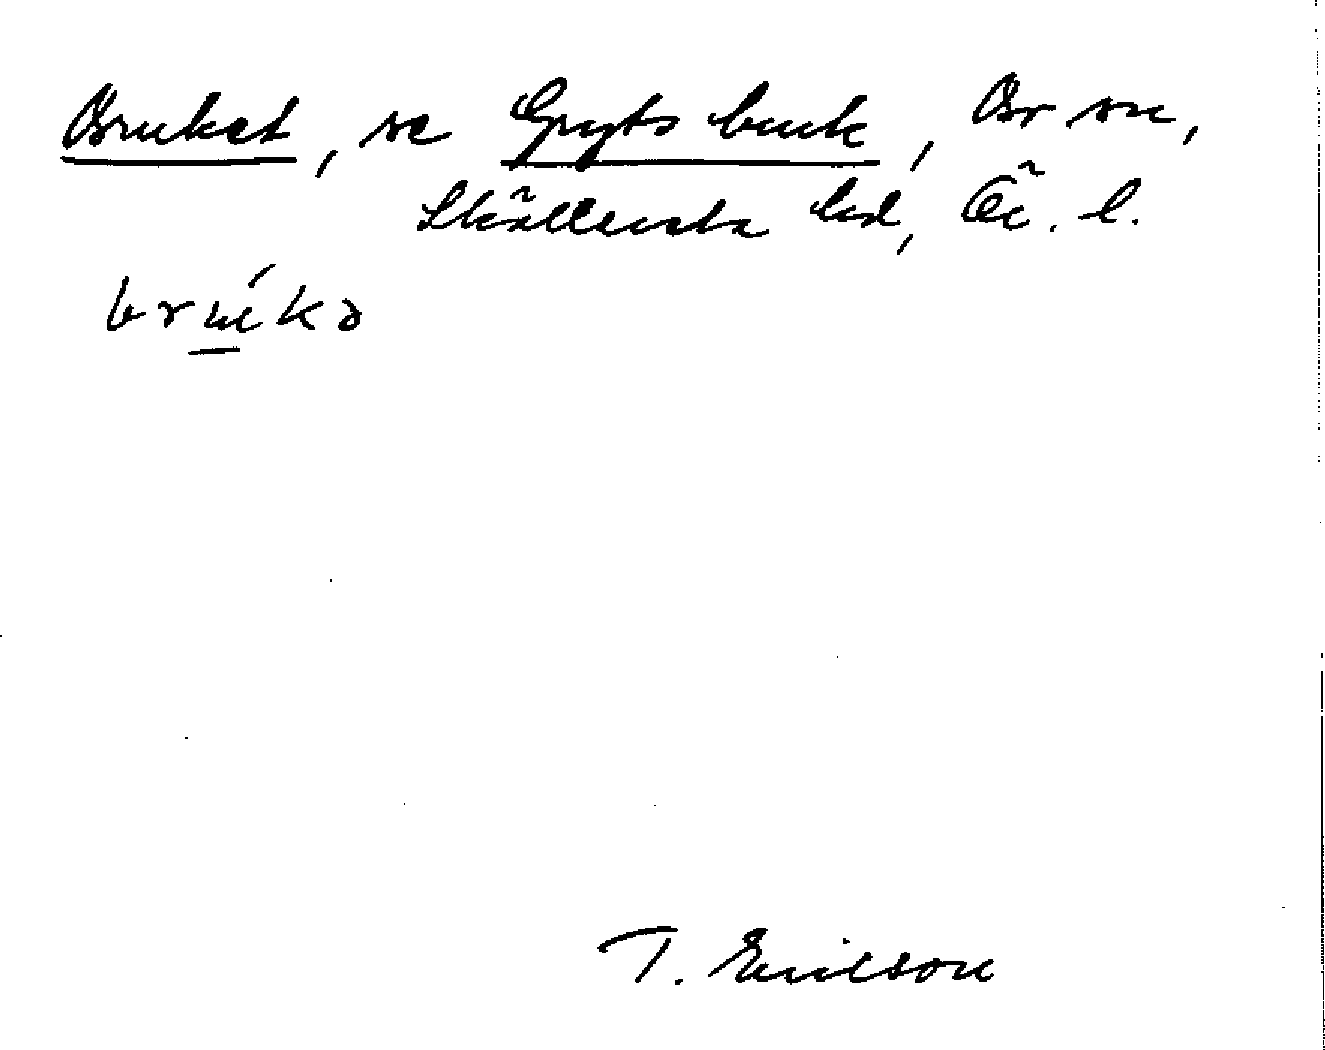 Bruket, se Gryts bruk, Br sn,
Skällersta hd, Ör. l.
brúkə
T. Ericson